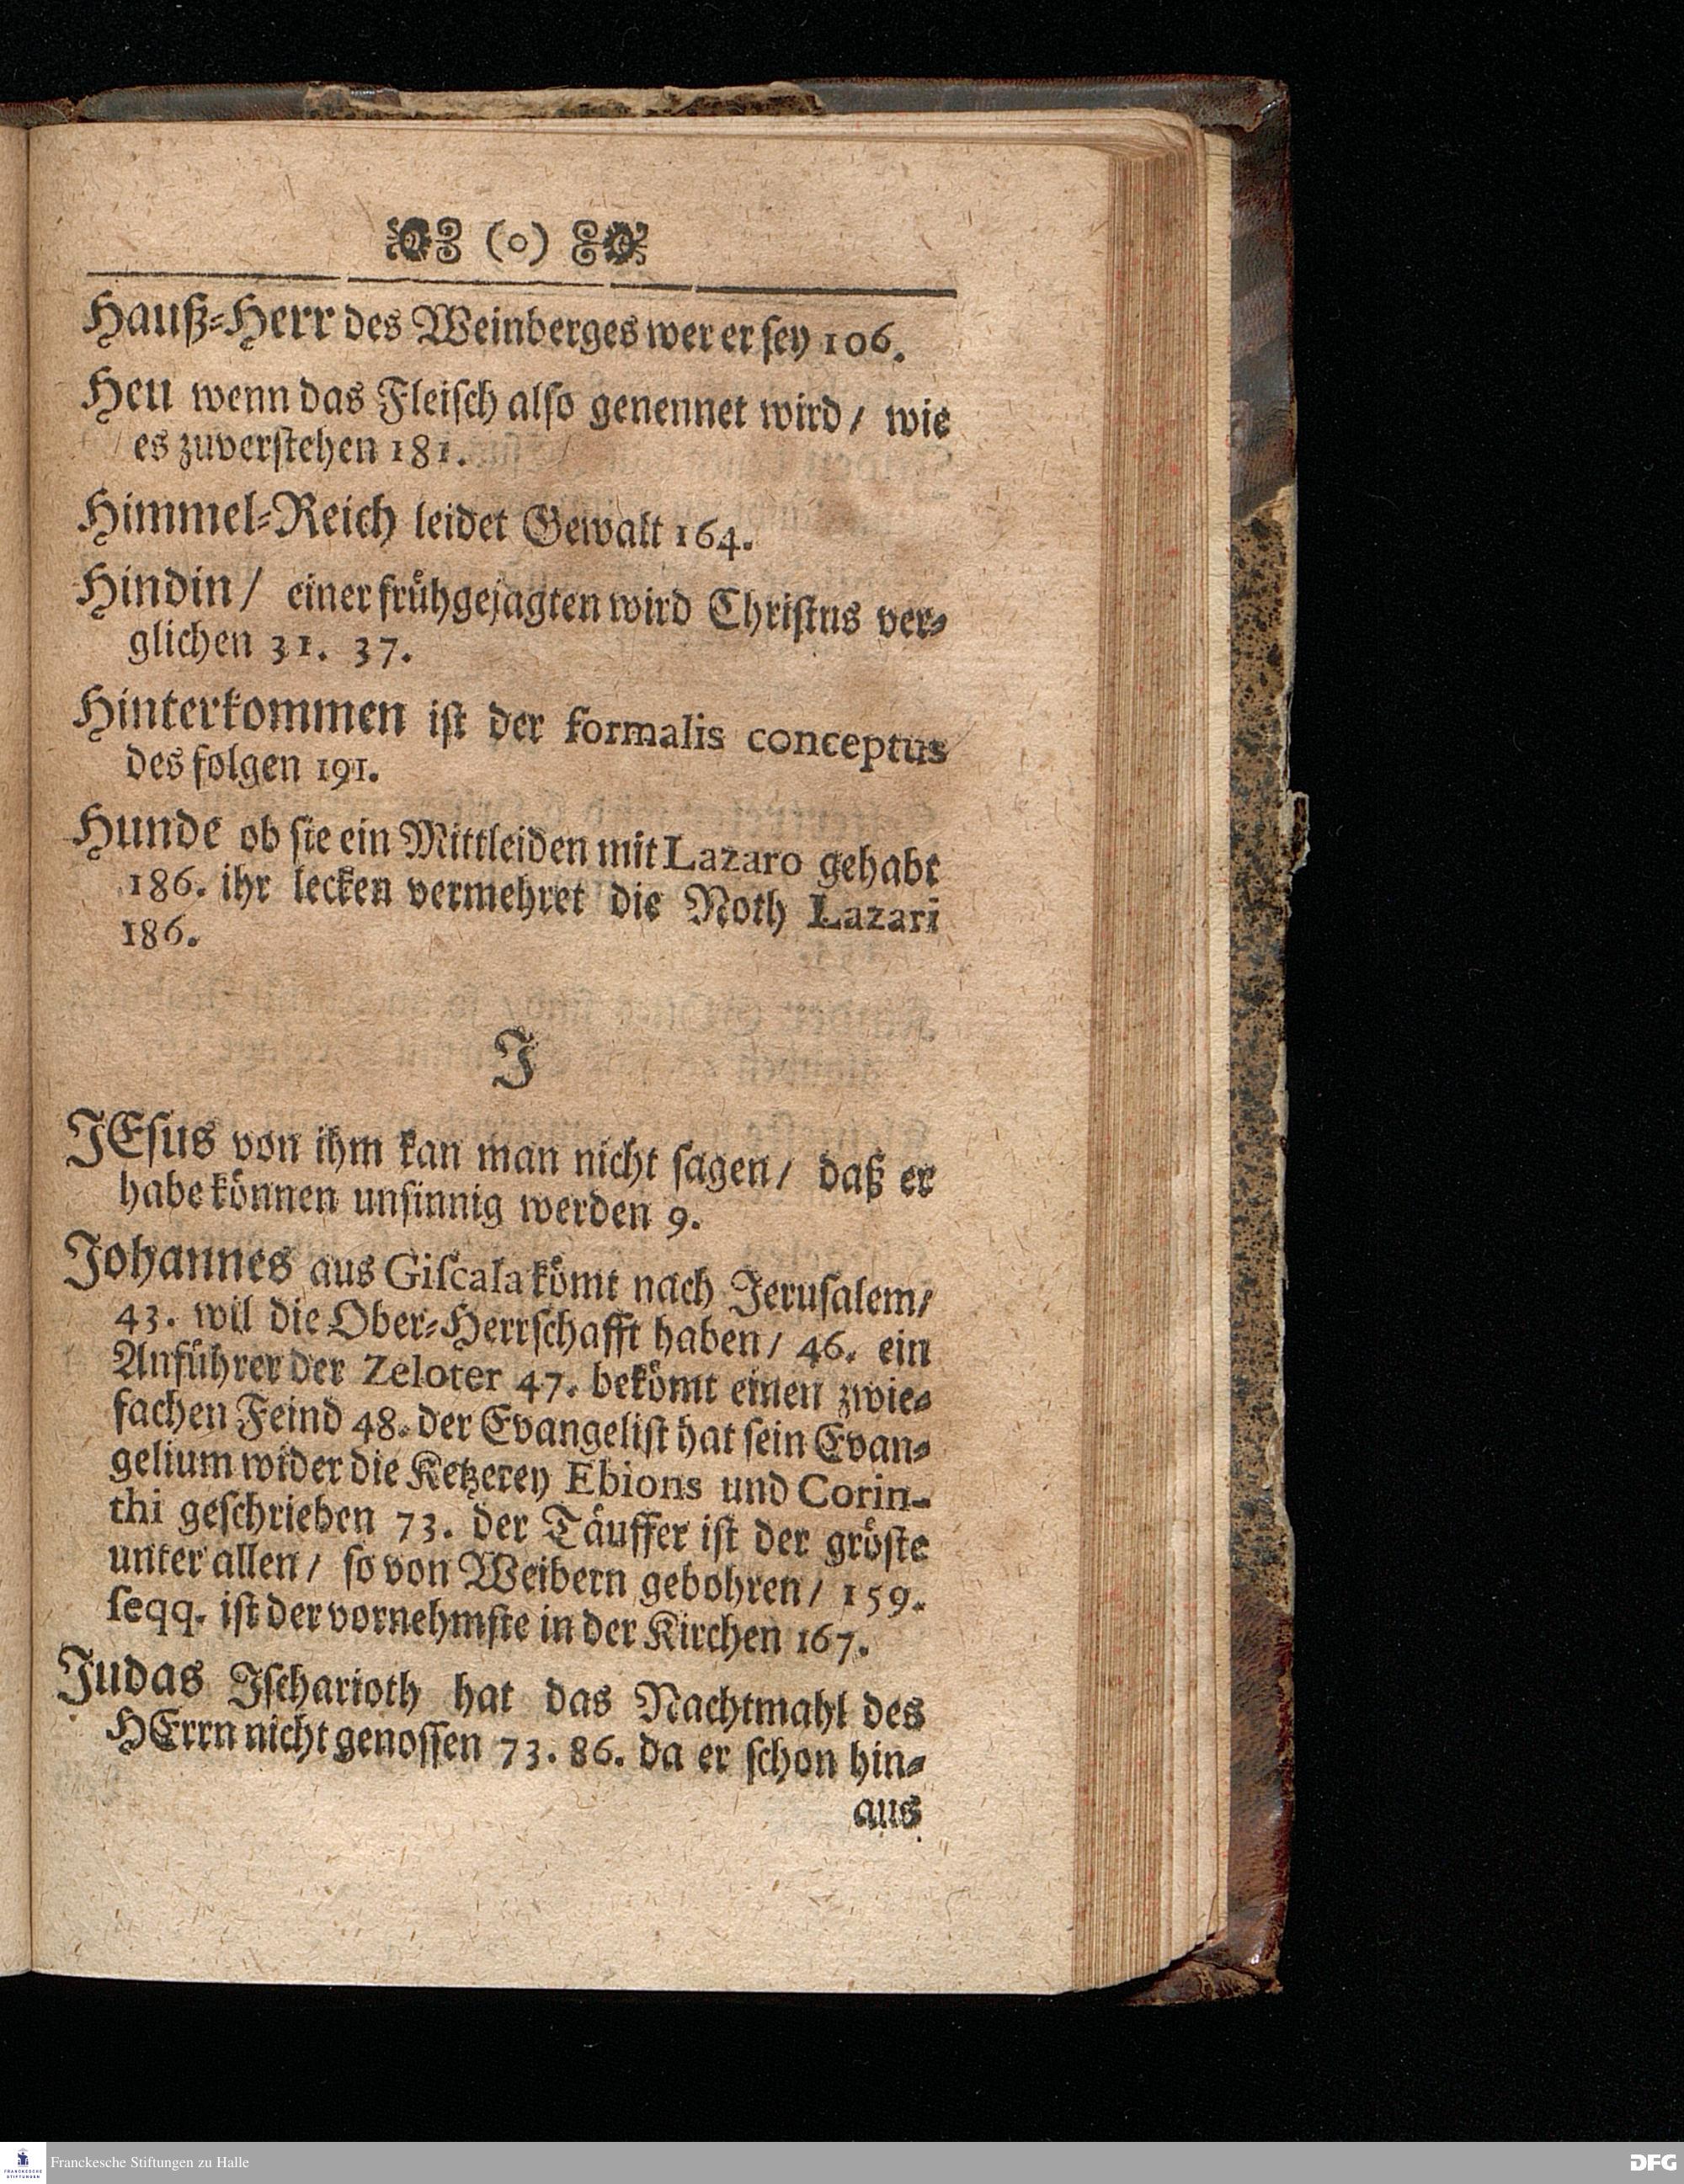 (o)
Hauß-Herr des Weinberges wer er ſey 106.
Heu wenn das Fleiſch alſo genennet wird / wie
es zuverſtehen 181.
Himmel-Reich leidet Gewalt 164.
Hindin / einer frühgejagten wird Chriſtus ver-
glichen 31. 37.
Hinterkommen iſt der formalis conceptus
des folgen 191.
Hunde ob ſie ein Mittleiden mit Lazaro gehabt
186. ihr lecken vermehret die Noth Lazari
186.
J
JEſus von ihm kan man nicht ſagen / daß er
habe können unſinnig werden 9.
Johannes aus Giſcala kömt nach Jeruſalem /
43. wil die Ober-Herrſchafft haben / 46. ein
Anführer der Zeloter 47. bekömt einen zwie-
fachen Feind 48. der Evangeliſt hat ſein Evan-
gelium wider die Ketzerey Ebions und Corin-
thi geſchrieben 73. der Täuffer iſt der gröſte
unter allen / ſo von Weibern gebohren / 159.
ſeqq. iſt der vornehmſte in der Kirchen 167.
Judas Iſcharioth hat das Nachtmahl des
HErrn nicht genoſſen 73. 86. da er ſchon hin-
aus
FRANCKESCHE
STIFTUNGEN
Franckesche Stiftungen zu Halle
DFG